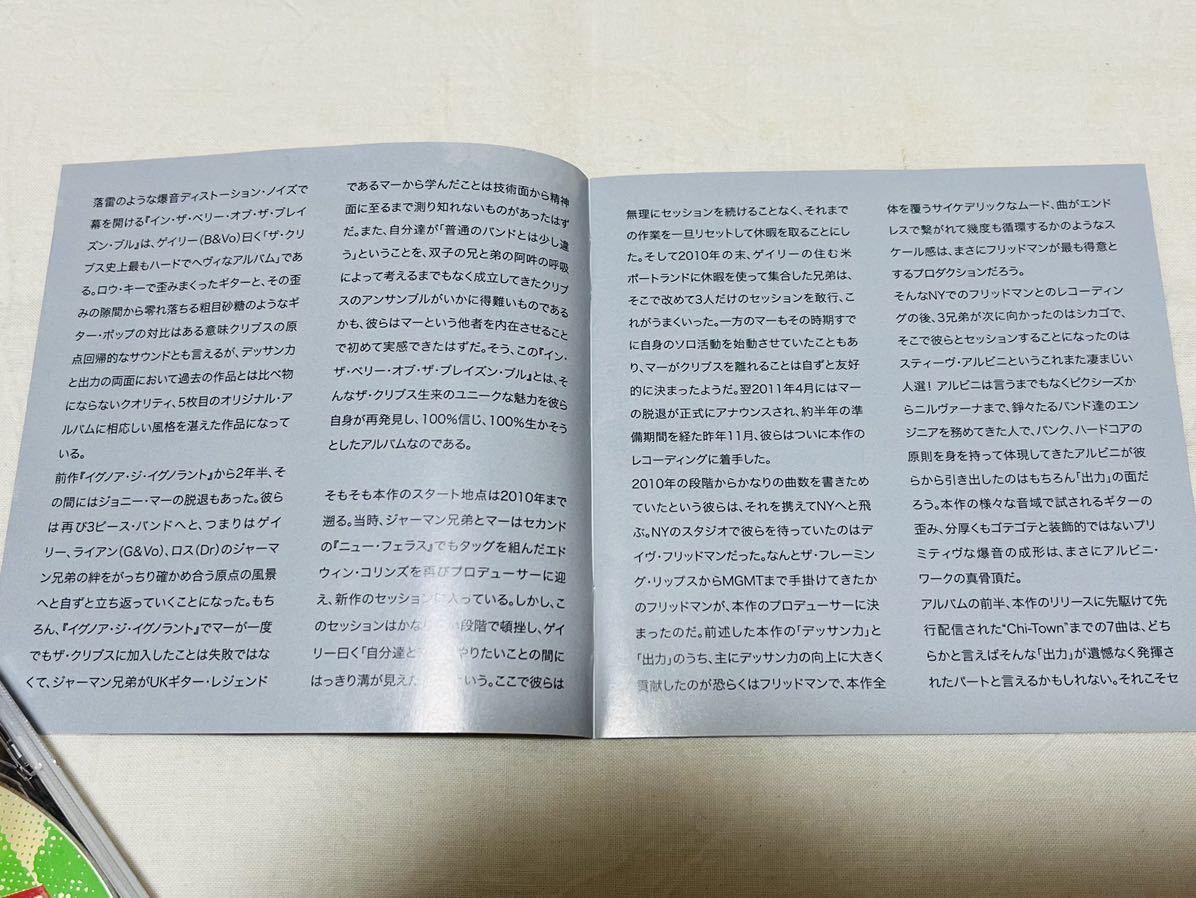 落雷のような爆音ディストーション・ノイズで
幕を開ける『イン・ザ・ベリー・オブ・ザ・ブレイ
ズン・ブル』は、ゲイリー(B&Vo)曰く「ザ・クリ
ブス史上最もハードでヘヴィなアルバム」であ
る。ロウ・キーで歪みまくったギターと、その歪
みの隙間から零れ落ちる粗目砂糖のようなギ
ター・ポップの対比はある意味クリブスの原
点回帰的なサウンドとも言えるが、デッサン力
と出力の両面において過去の作品とは比べ物
にならないクオリティ、5枚目のオリジナル・ア
ルバムに相応しい風格を湛えた作品になって
いる。
前作『イグノア・ジ・イグノラント』から2年半、そ
の間にはジョニー・マーの脱退もあった。彼ら
は再び3ピース・バンドへと、つまりはゲイ
リー、ライアン(G&Vo)、ロス(Dr)のジャーマ
ン兄弟の絆をがっちり確かめ合う原点の風景
へと自ずと立ち返っていくことになった。もち
ろん、『イグノア・ジ・イグノラント』でマーが一度
でもザ・クリブスに加入したことは失敗ではな
くて、ジャーマン兄弟がUKギター・レジェンド
であるマーから学んだことは技術面から精神
面に至るまで測り知れないものがあったはず
だ。また、自分達が「普通のバンドとは少し違
う」ということを、双子の兄と弟の阿吽の呼吸
によって考えるまでもなく成立してきたクリブ
スのアンサンブルがいかに得難いものである
かも、彼らはマーという他者を内在させること
で初めて実感できたはずだ。そう、この『イン・
ザ・ベリー・オブ・ザ・ブレイズン・ブル』とは、そ
んなザ・クリブス生来のユニークな魅力を彼ら
自身が再発見し、100%信じ、100%生かそう
としたアルバムなのである。
そもそも本作のスタート地点は2010年まで
遡る。当時、ジャーマン兄弟とマーはセカンド
の『ニュー・フェラス』でもタッグを組んだエド
ウィン・コリンズを再びプロデューサーに迎
え、新作のセッションに入っている。しかし、こ
のセッションはかなり 段階で頓挫し、ゲイ
リー曰く「自分達と やりたいことの間に
はっきり溝が見えた いう。ここで彼らは
無理にセッションを続けることなく、それまで
の作業を一旦リセットして休暇を取ることにし
た。そして2010年の末、ゲイリーの住む米
ポートランドに休暇を使って集合した兄弟は、
そこで改めて3人だけのセッションを敢行、こ
れがうまくいった。一方のマーもその時期すで
に自身のソロ活動を始動させていたこともあ
り、マーがクリブスを離れることは自ずと友好
的に決まったようだ。翌2011年4月にはマー
の脱退が正式にアナウンスされ、約半年の準
備期間を経た昨年11月、彼らはついに本作の
レコーディングに着手した。
2010年の段階からかなりの曲数を書きため
ていたという彼らは、それを携えてNYへと飛
ぶ。NYのスタジオで彼らを待っていたのはデ
イヴ・フリッドマンだった。なんとザ・フレーミン
グ・リップスからMGMTまで手掛けてきたか
のフリッドマンが、本作のプロデューサーに決
まったのだ。前述した本作の「デッサン力」と
「出力」のうち、主にデッサン力の向上に大きく
貢献したのが恐らくはフリッドマンで、本作全
体を覆うサイケデリックなムード、曲がエンド
レスで繋がれて幾度も循環するかのようなス
ケール感は、まさにフリッドマンが最も得意と
するプロダクションだろう。
そんなNYでのフリッドマンとのレコーディン
グの後、3兄弟が次に向かったのはシカゴで、
そこで彼らとセッションすることになったのは
スティーヴ・アルビニというこれまた凄まじい
人選！アルビニは言うまでもなくピクシーズか
らニルヴァーナまで、錚々たるバンド達のエン
ジニアを務めてきた人で、パンク、ハードコアの
原則を身を持って体現してきたアルビニが彼
らから引き出したのはもちろん「出力」の面だ
ろう。本作の様々な音域で試されるギターの
歪み、分厚くもゴテゴテと装飾的ではないプリ
ミティヴな爆音の成形は、まさにアルビニ・
ワークの真骨頂だ。
アルバムの前半、本作のリリースに先駆けて先
行配信された“Chi-Town”までの7曲は、どち
らかと言えばそんな「出力」が遺憾なく発揮さ
れたパートと言えるかもしれない。それこそセ